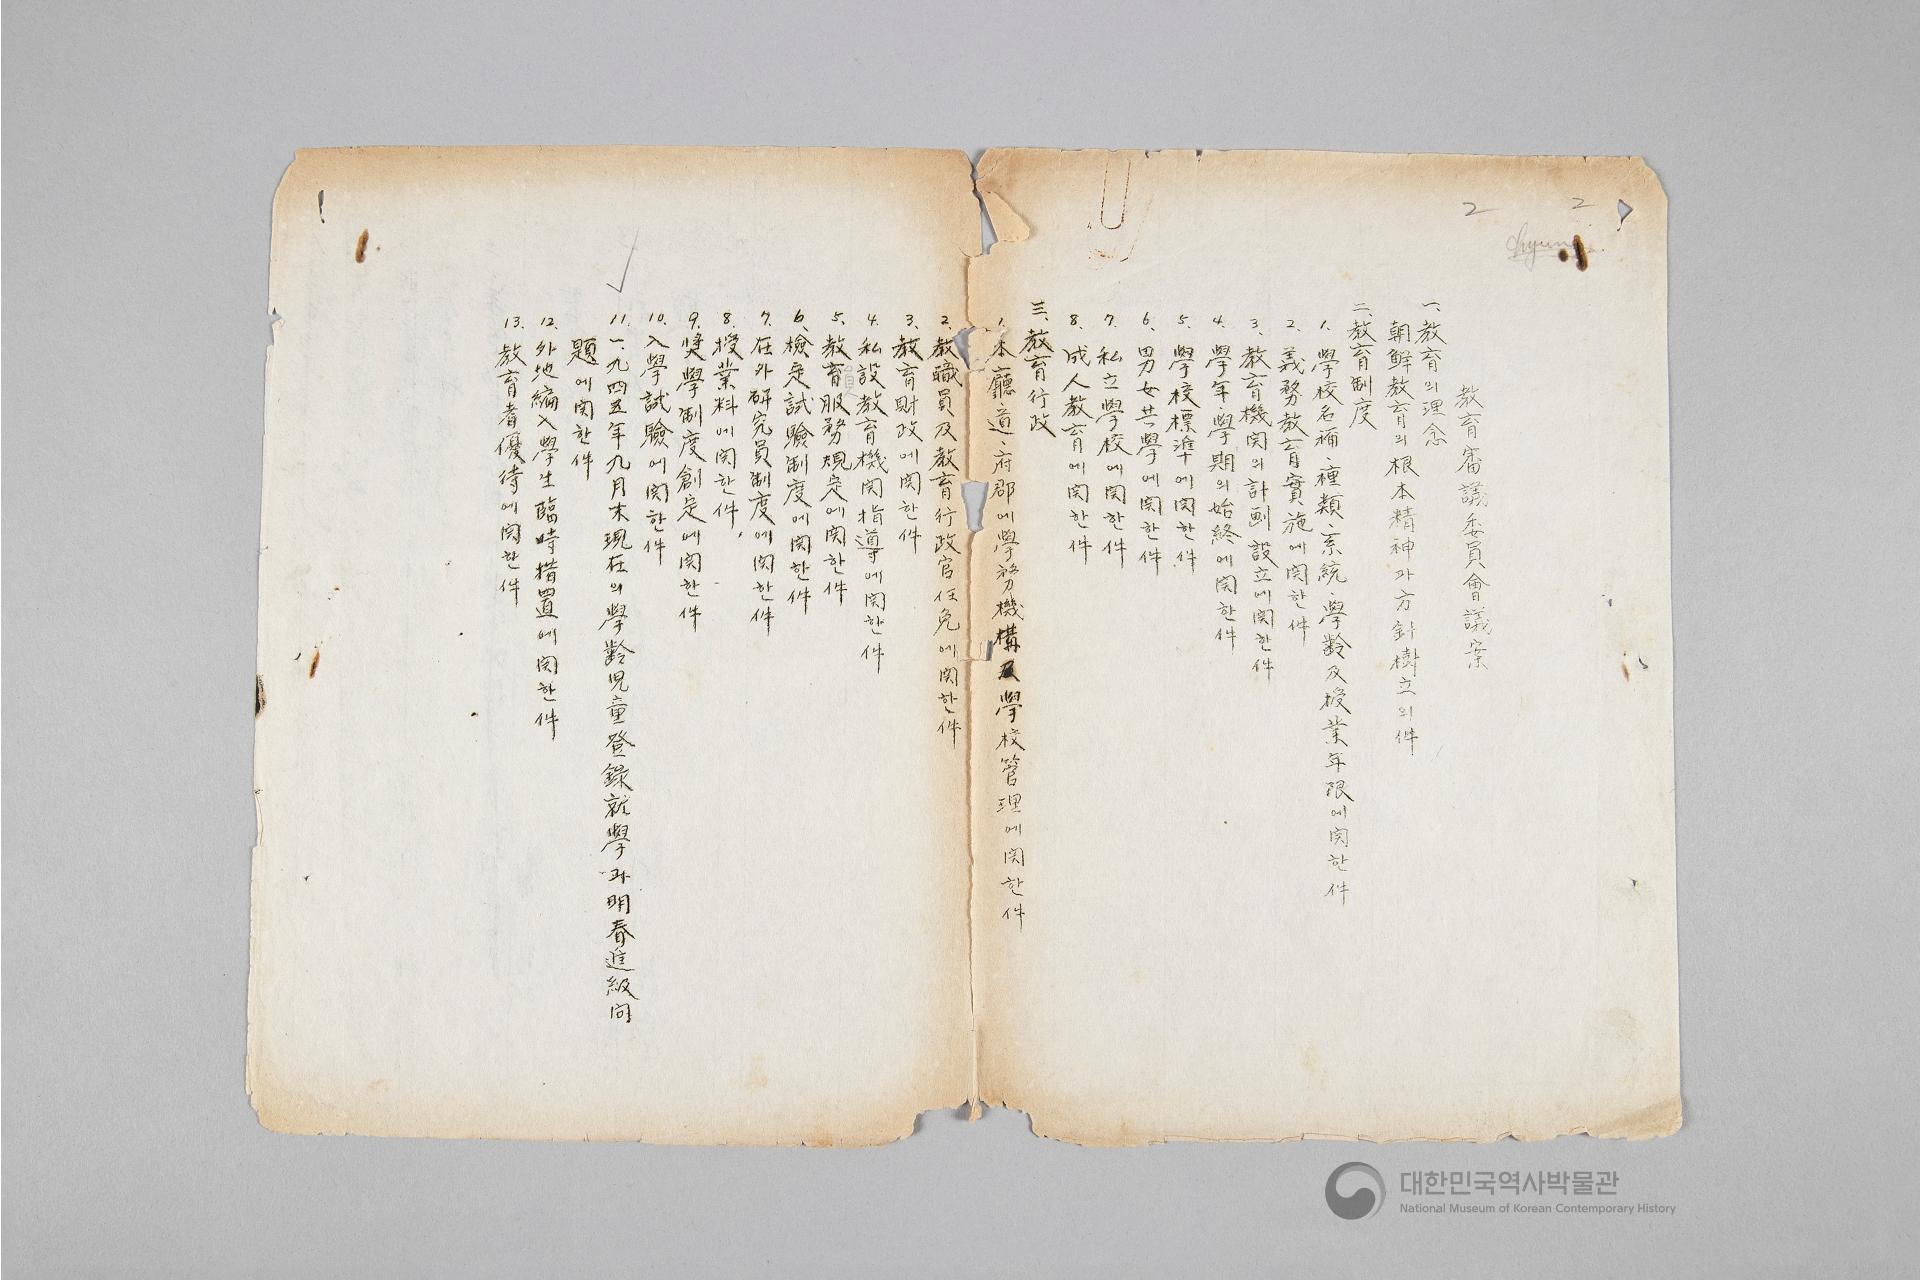 2 2
教育審議委員會議案
一、教育의理念
朝鮮教育의根本精神과方針樹立의件
二、教育制度
1. 學校名稱、種類、系統、學齡及授業年限에関한件
2. 義務教育實施에関한件
3. 教育機関의計劃設立에関한件
4. 學年、學期의始終에関한件
5. 學校標準에関한件
6. 男女共學에関한件
7. 私立學校에関한件
8. 成人教育에関한件
三、教育行政
1. 本廳、道、府郡에學務機構及學校管理에関한件
2. 教職員及教育行政官任免에関한件
3. 教育財政에関한件
4. 私設教育機関指導에関한件
5. 教育服務規定에関한件
6. 檢定試驗制度에関한件
7. 在外研究員制度에関한件
8. 授業料에関한件
9. 奬學制度創定에関한件
10. 入學試驗에関한件
11. 一九四五年九月末現在의學齡児童登錄就學과明春進級问
題에関한件
12. 外地編入學生臨時措置에関한件
13. 教育者優待에関한件
대한민국역사박물관
National Museum of Korean Contemporary History